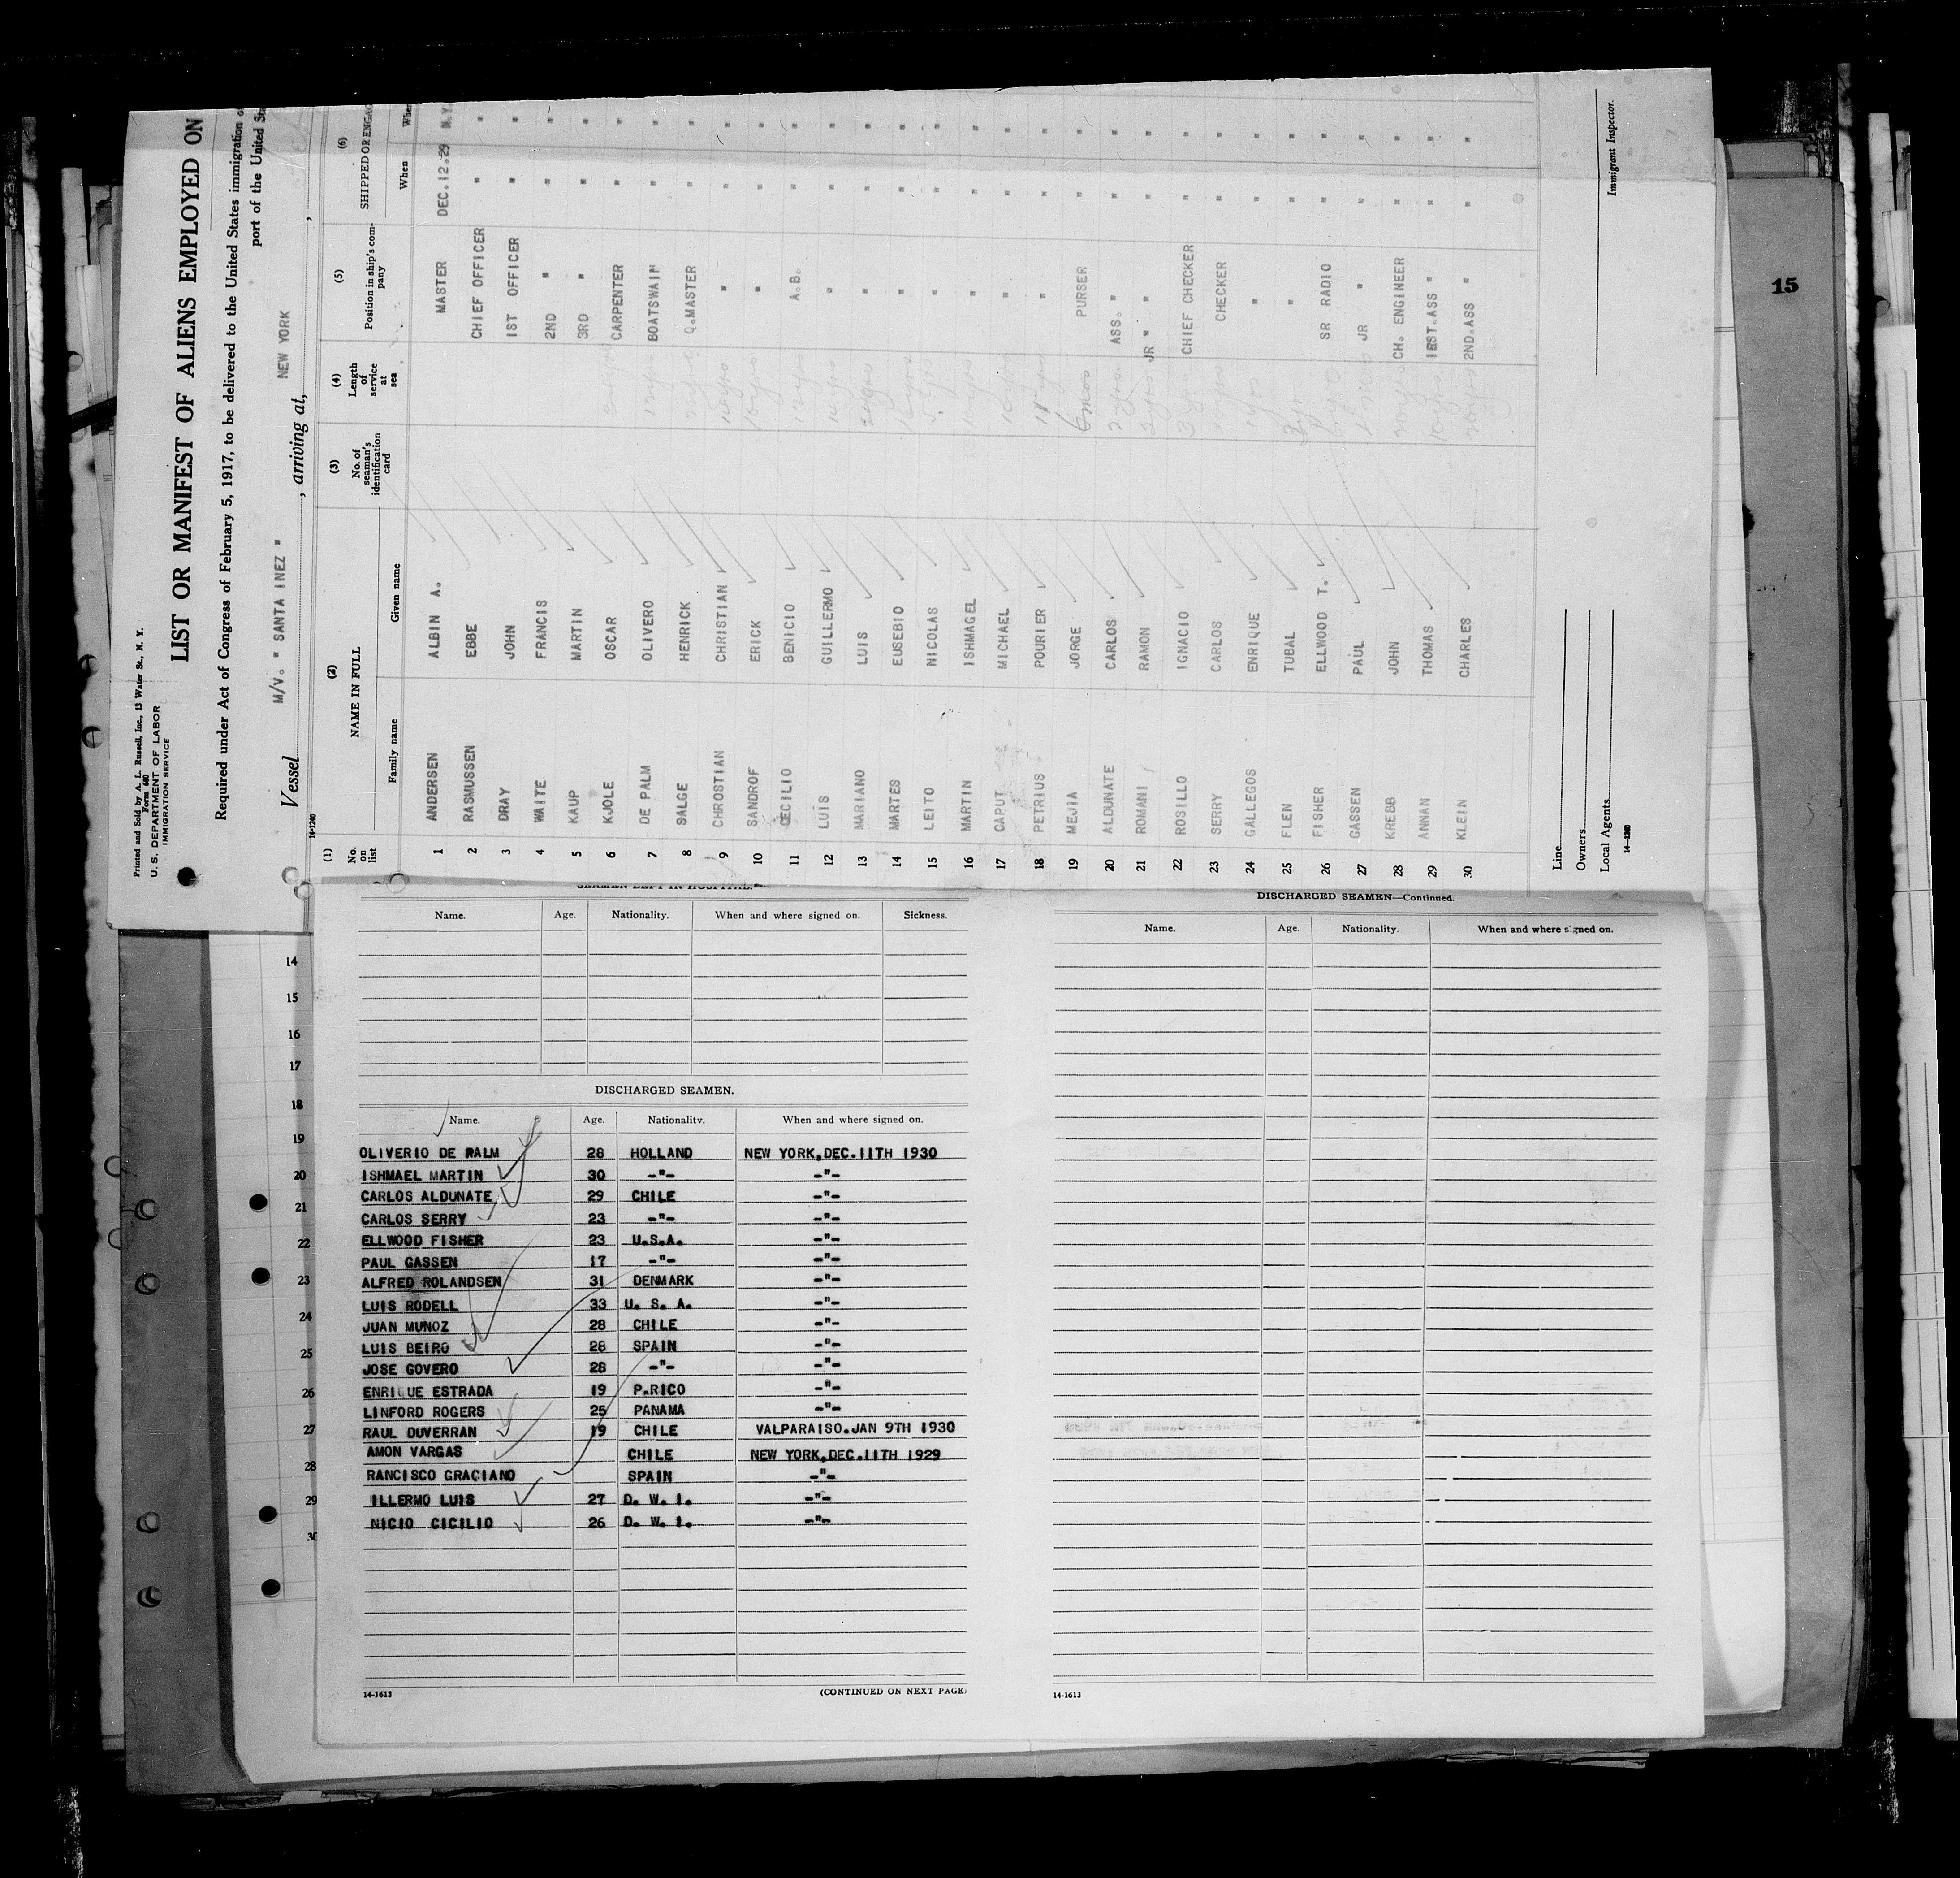 Printed and Sold by A. L. Russell, Inc., 13 Water St., N. Y.
Form 680
U. S. DEPARTMENT OF LABOR
IMMIGRATION SERVICE
LIST OR MANIFEST OF ALIENS EMPLOYED ON
Required under Act of Congress of February 5, 1917, to be delivered to the United States immigration
port of the United
Vessel M/V. " SANTA INEZ " , arriving at, NEW YORK ,
14-1240
(1) (2) (3) (4) (5) (6)
No. on list NAME IN FULL No. of seaman's identification card Length of service at sea Position in ship's company SHIPPED OR ENGAG
Family name Given name When Whe
1 ANDERSEN ALBIN A. MASTER DEC.12.29 N.Y.
2 RASMUSSEN EBBE CHIEF OFFICER " "
3 DRAY JOHN 1ST OFFICER " "
4 WAITE FRANCIS 2ND " " "
5 KAUP MARTIN 3RD " " "
6 KJOLE OSCAR CARPENTER " "
7 DE PALM OLIVERO BOATSWAIN " "
8 SALGE HENRICK Q.MASTER " "
9 CHROSTIAN CHRISTIAN " " "
10 SANDROF ERICK " " "
11 CECILIO BENICIO A.B. " "
12 LUIS GUILLERMO " " "
13 MARIANO LUIS " " "
14 MARTES EUSEBIO " " "
15 LEITO NICOLAS " " "
16 MARTIN ISHMAGEL " " "
17 CAPUT MICHAEL " " "
18 PETRIUS POURIER " " "
19 MEJIA JORGE 6 mos PURSER " "
20 ALDUNATE CARLOS ASS. " " "
21 ROMANI RAMON JR " " " "
22 ROSILLO IGNACIO CHIEF CHECKER " "
23 SERRY CARLOS CHECKER " "
24 GALLEGOS ENRIQUE " " "
25 FLEN TUBAL " " "
26 FISHER ELLWOOD T. SR RADIO " "
27 GASSEN PAUL JR " " "
28 KREBB JOHN CH. ENGINEER " "
29 ANNAN THOMAS 1EST.ASS " " "
30 KLEIN CHARLES 2ND.ASS " " "
Line
Owners
Local Agents
14-1240
Immigrant Inspector.
15
SEAMEN LEFT IN HOSPITAL.
Name. Age. Nationality. When and where signed on. Sickness.
14
15
16
17
18
19
20
21
22
23
24
25
26
27
28
29
30
DISCHARGED SEAMEN.
Name. Age. Nationality. When and where signed on.
OLIVERIO DE PALM 28 HOLLAND NEW YORK,DEC.11TH 1930
ISHMAEL MARTIN 30 -"- -"-
CARLOS ALDUNATE 29 CHILE -"-
CARLOS SERRY 23 -"- -"-
ELLWOOD FISHER 23 U.S.A. -"-
PAUL GASSEN 17 -"- -"-
ALFRED ROLANDSEN 31 DENMARK -"-
LUIS RODELL 33 U. S. A. -"-
JUAN MUNOZ 28 CHILE -"-
LUIS BEIRO 28 SPAIN -"-
JOSE GOVERO 28 -"- -"-
ENRIQUE ESTRADA 19 P.RICO -"-
LINFORD ROGERS 25 PANAMA -"-
RAUL DUVERRAN 19 CHILE VALPARAISO.JAN 9TH 1930
AMON VARGAS CHILE NEW YORK,DEC.11TH 1929
RANCISCO GRACIANO SPAIN -"-
ILLERMO LUIS 27 D. W. I. -"-
NICIO CICILIO 26 D. W. I. -"-
14-1613 (CONTINUED ON NEXT PAGE)
DISCHARGED SEAMEN—Continued.
Name. Age. Nationality. When and where signed on.
14-1613